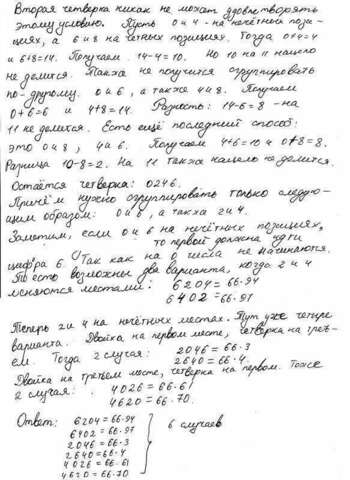 Вторая четверка никак не может удовлетворять
этому условию. Пусть 0 и 4 - на нечётных пози-
циях, а 6 и 8 на чётных позициях. Тогда 0+4=4
и 6+8=14. Получаем 14-4=10. Но 10 на 11 нацело
не делится. Также не получится сгруппировать
по-другому. 0 и 6, а также 4 и 8. Получаем
0+6=6 и 4+8=14. Разность: 14-6=8 - на
11 не делится. Есть ещё последний способ:
это 0 и 8, 4 и 6. Получаем 4+6=10 и 0+8=8.
Разница 10-8=2. На 11 также нацело не делится.
Остаётся четверка: 0246.
Причём нужно сгруппировать только следую-
щим образом: 0 и 6, а также 2 и 4.
Заметим, если 0 и 6 на нечётных позициях,
то первой должна идти
цифра 6. Так как на 0 числа не начинаются.
То есть возможны два варианта, когда 2 и 4
меняются местами: 6204=66·94
6402=66·97
Теперь 2 и 4 на нечётных местах. Тут уже четыре
варианта. Двойка на первом месте, четвёрка на треть-
ем. Тогда 2 случая: 2046=66·3
2640=66·4.
Двойка на третьем месте, четверка на первом. Тоже
2 случая: 4026=66·61
4620=66·70.
Ответ: 6204=66·94
6402=66·97
2046=66·3
2640=66·4
4026=66·61
4620=66·70
6 случаев